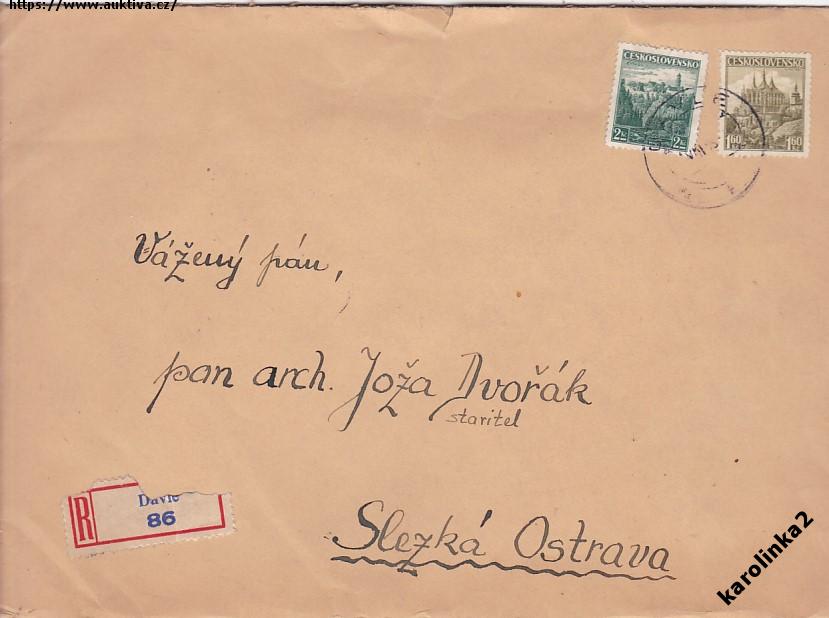 https://www.auktiva.cz/
ČESKOSLOVENSKO
2 2
ČESKOSLOVENSKO
1.60 1.60
Vážený pán,
pan arch. Joža Dvořák
staritel
Davle
86
R
Slezká Ostrava
karolinka2